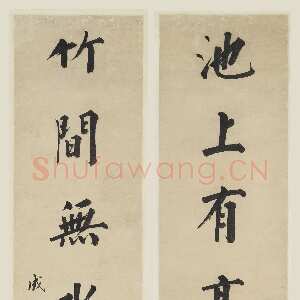 池上有
竹間無
成
Shufawang.CN